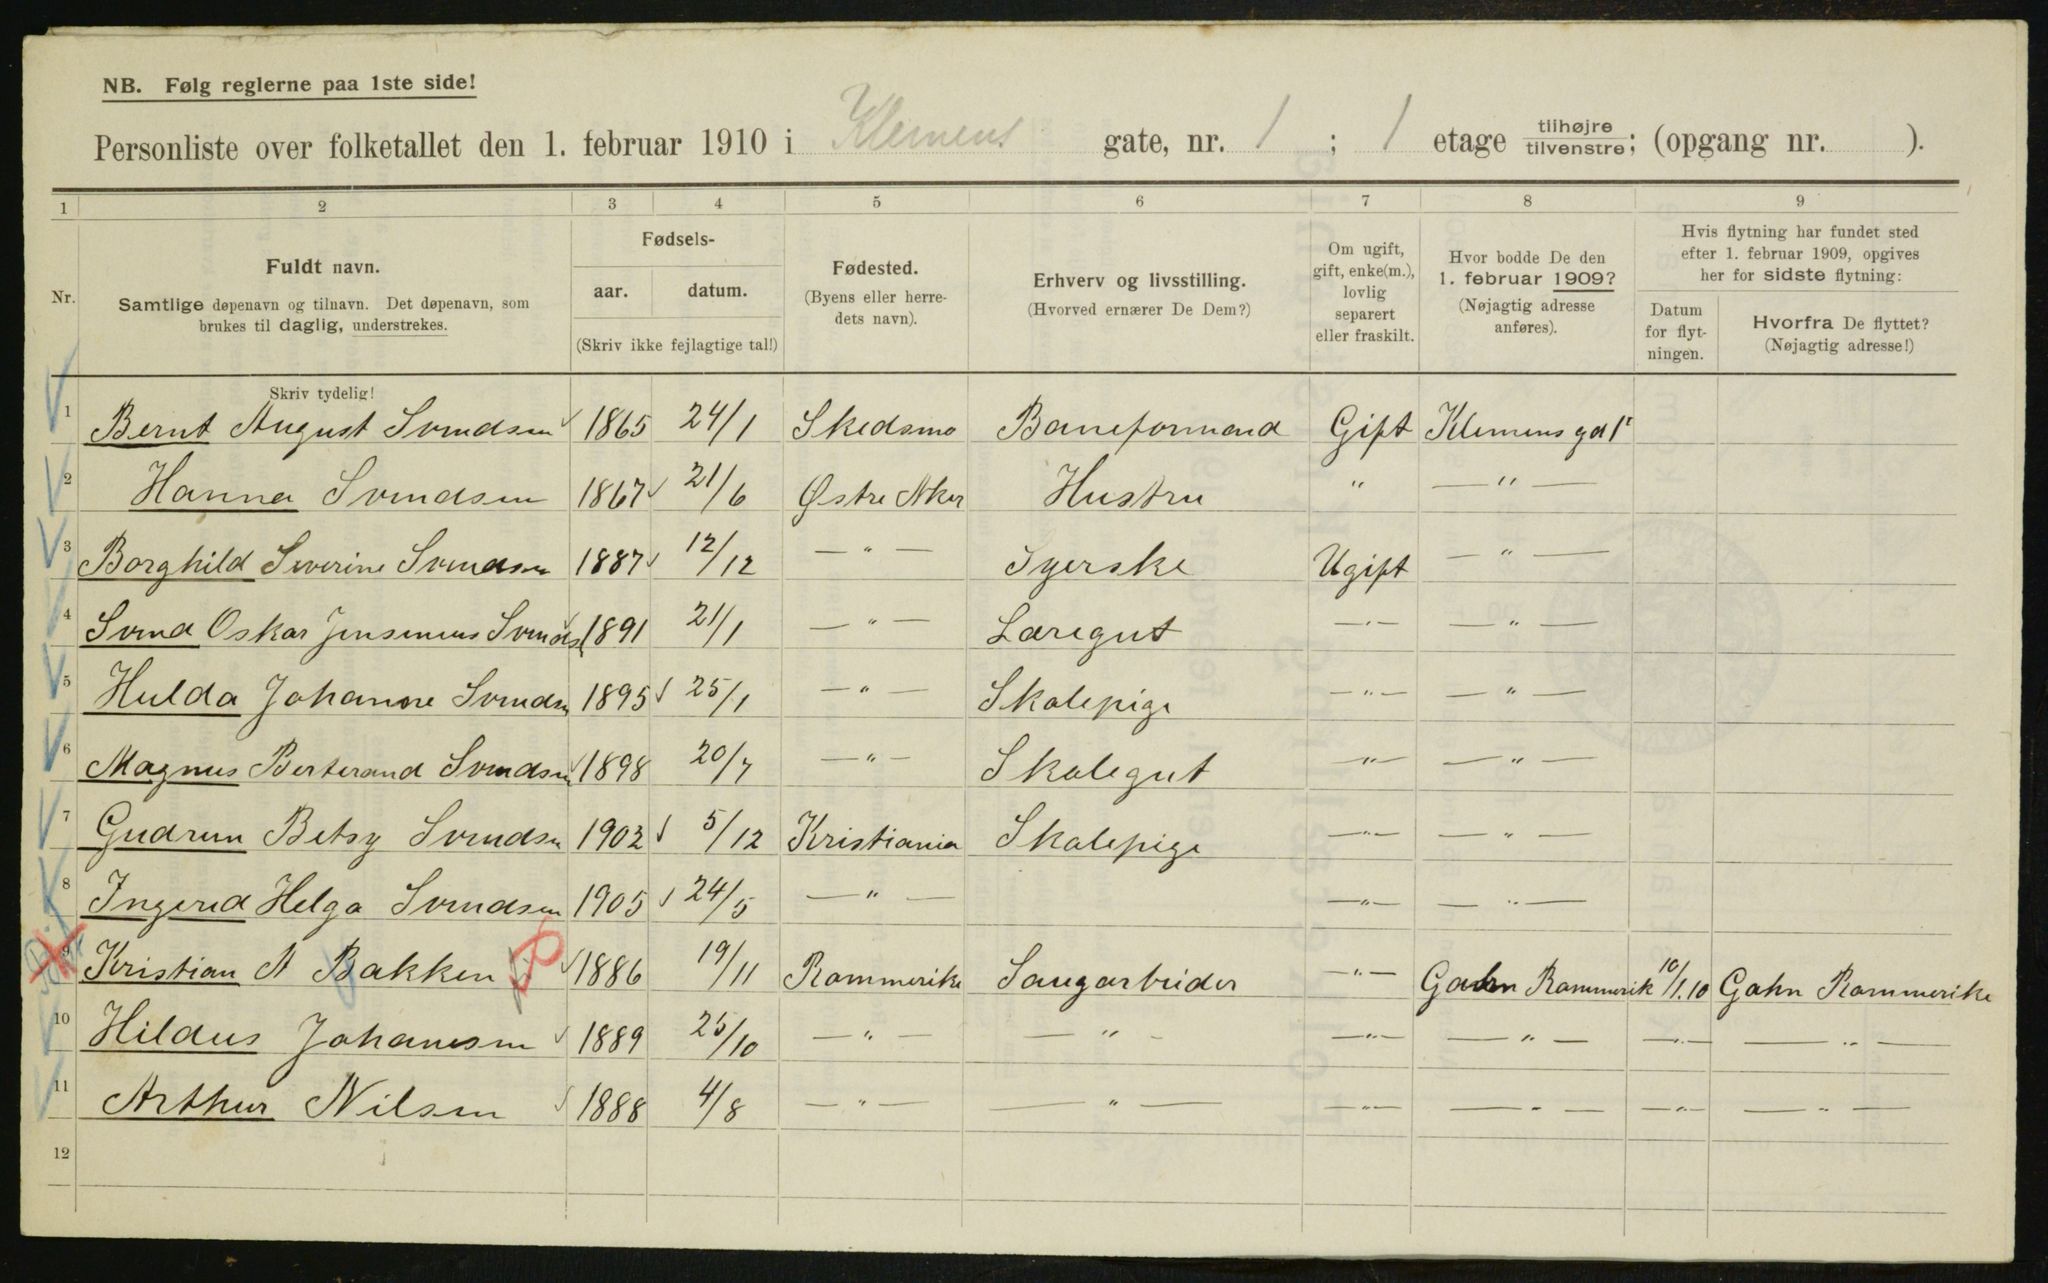 NB. Følg reglerne paa 1ste side!
Personliste over folketallet den 1. februar 1910 i Klemens gate, nr. 1 ; 1 etage tilhøjre tilvenstre; (opgang nr. ).
1 2 3 4 5 6 7 8 9
Nr.
Fuldt navn.
Samtlige døpenavn og tilnavn. Det døpenavn, som
brukes til daglig, understrekes.
Skriv tydelig!
Fødsels-
aar. datum.
(Skriv ikke fejlagtige tal!)
Fødested.
(Byens eller herre-
dets navn).
Erhverv og livsstilling.
(Hvorved ernærer De Dem?)
Om ugift,
gift, enke(m.),
lovlig
separert
eller fraskilt.
Hvor bodde De den
1. februar 1909?
(Nøjagtig adresse
anføres).
Hvis flytning har fundet sted
efter 1. februar 1909, opgives
her for sidste flytning:
Datum
for flyt-
ningen.
Hvorfra De flyttet?
(Nøjagtig adresse!)
1 Bernt August Svendsen 1865 24/1 Skedsmo Baneformand Gift Klemens gd 1
2 Hanna Svendsen 1867 21/6 Østre Aker Hustru " — " —
3 Borghild Severine Svendsen 1887 12/12 — " — Syerske Ugift — " —
4 Svend Oskar Jensenius Svends 1891 21/1 — " — Læregut — " — — " —
5 Hulda Johanne Svendsen 1895 25/1 — " — Skolepige — " — — " —
6 Magnus Berterand Svendsen 1898 20/7 — " — Skolegut — " — — " —
7 Gudrun Betsy Svendsen 1902 5/12 Kristiania Skolepige — " — — " —
8 Ingerid Helga Svendsen 1905 24/5 — " — — " — — " —
9 Kristian A Bakken 1886 19/11 Rommerike Saugarbeider — " — Gahn Rommerik 10/1.10 Gahn Rommerike
10 Hildus Johannesen 1889 25/10 — " — — " — — " — — " — — " — — " —
11 Arthur Nilsen 1888 4/8 — " — — " — — " — — " — — " — — " —
12